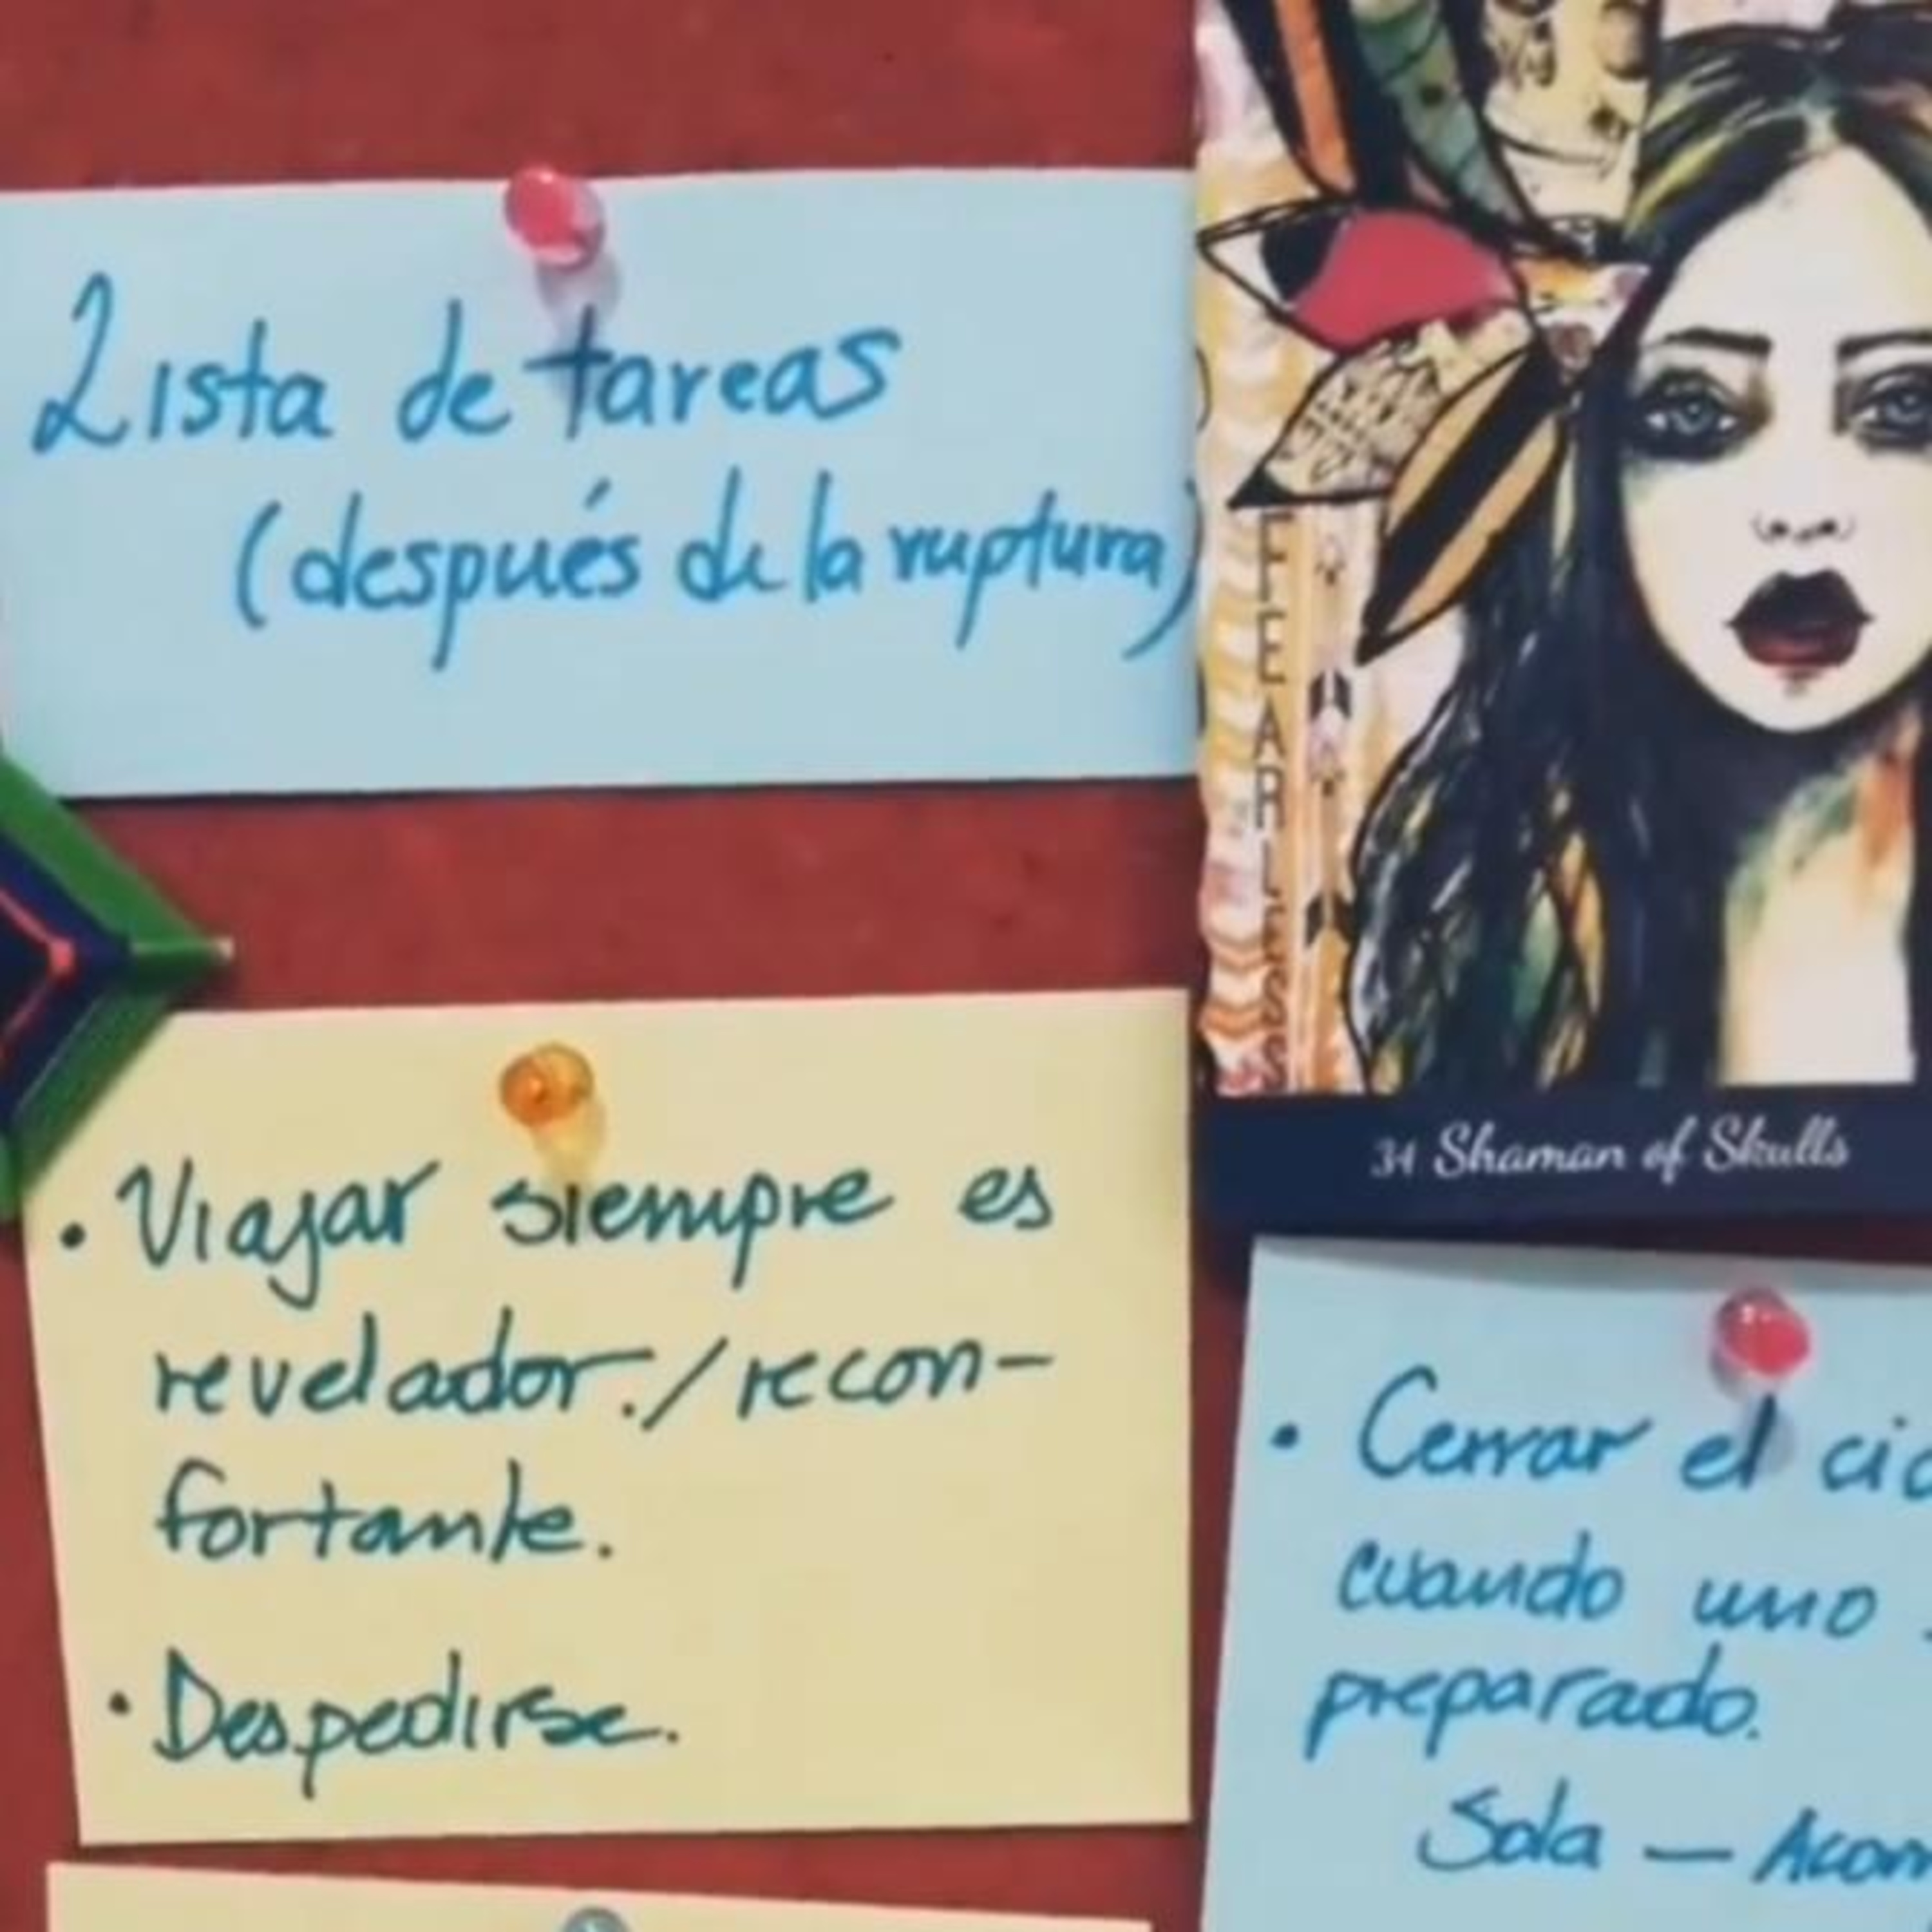 Lista de tareas
(después de la ruptura)
FEARLESS
34 Shaman of Skulls
• Viajar siempre es
revelador./recon-
fortante.
• Despedirse.
• Cerrar el
cuando uno
preparado.
Sola —